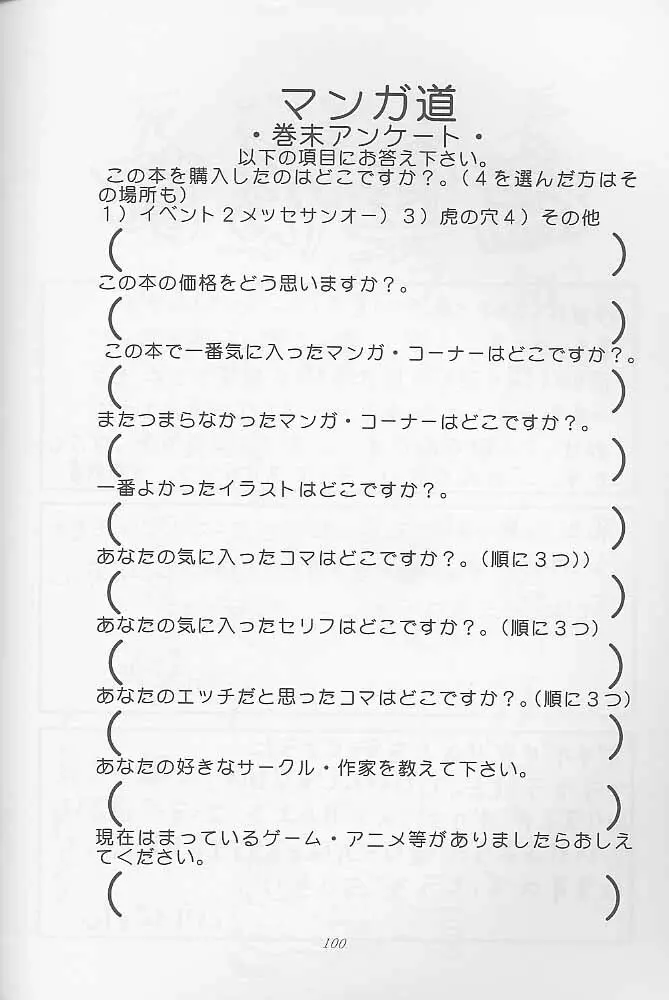 マンガ道
・巻末アンケート・
以下の項目にお答え下さい。
この本を購入したのはどこですか？。（４を選んだ方はそ
の場所も）
１）イベント２メッセサンオー）３）虎の穴４）その他
(　)
この本の価格をどう思いますか？。
(　)
この本で一番気に入ったマンガ・コーナーはどこですか？。
(　)
またつまらなかったマンガ・コーナーはどこですか？。
(　)
一番よかったイラストはどこですか？。
(　)
あなたの気に入ったコマはどこですか？。（順に３つ））
(　)
あなたの気に入ったセリフはどこですか？。（順に３つ）
(　)
あなたのエッチだと思ったコマはどこですか？。（順に３つ）
(　)
あなたの好きなサークル・作家を教えて下さい。
(　)
現在はまっているゲーム・アニメ等がありましたらおしえ
てください。
(　)
100